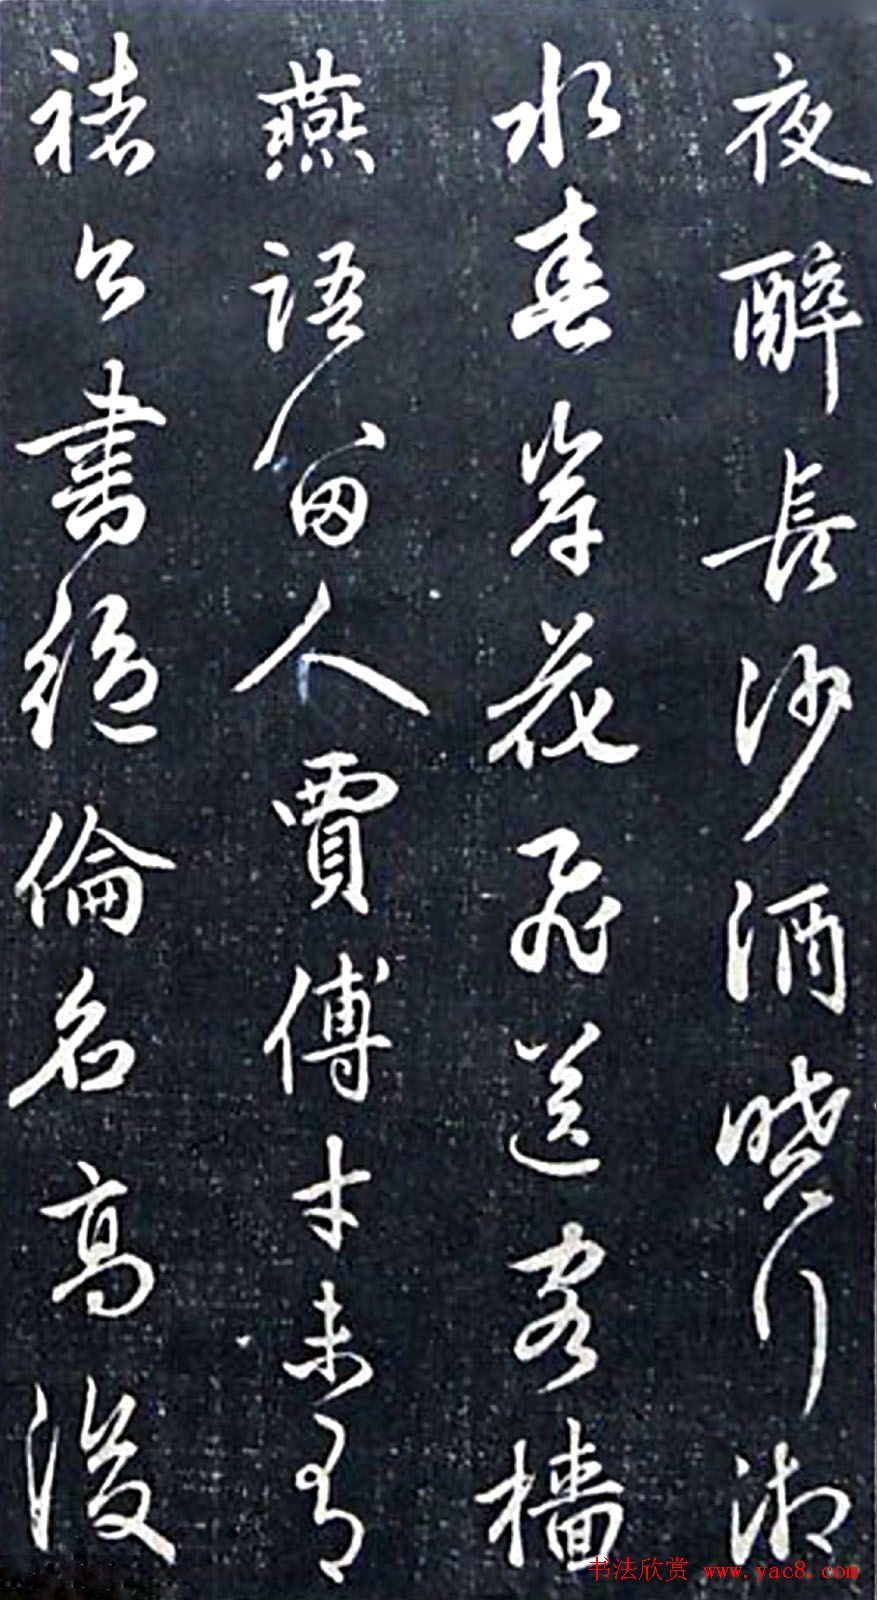 夜醉長沙酒曉行湘
水春岸花飛送客檣
燕語留人賈傅才未有
禇公書絕倫名高後
书法欣赏 www.yac8.com